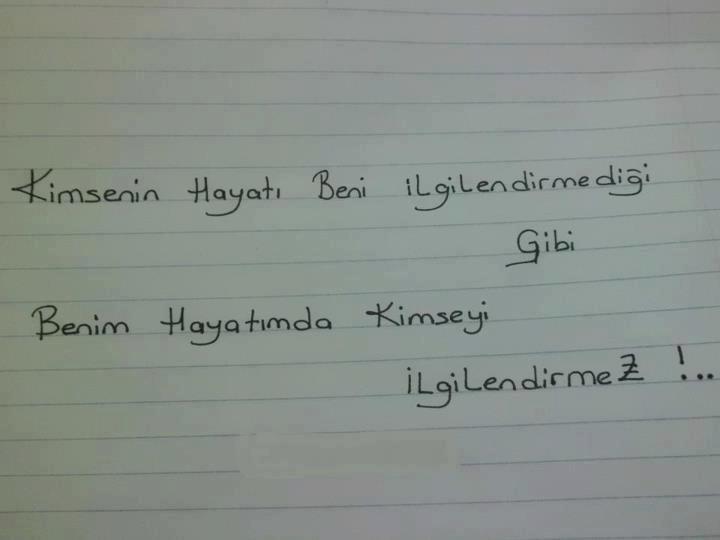 Kimsenin Hayatı Beni iLgiLendirmediği
Gibi
Benim Hayatımda Kimseyi
iLgiLendirmeZ !..